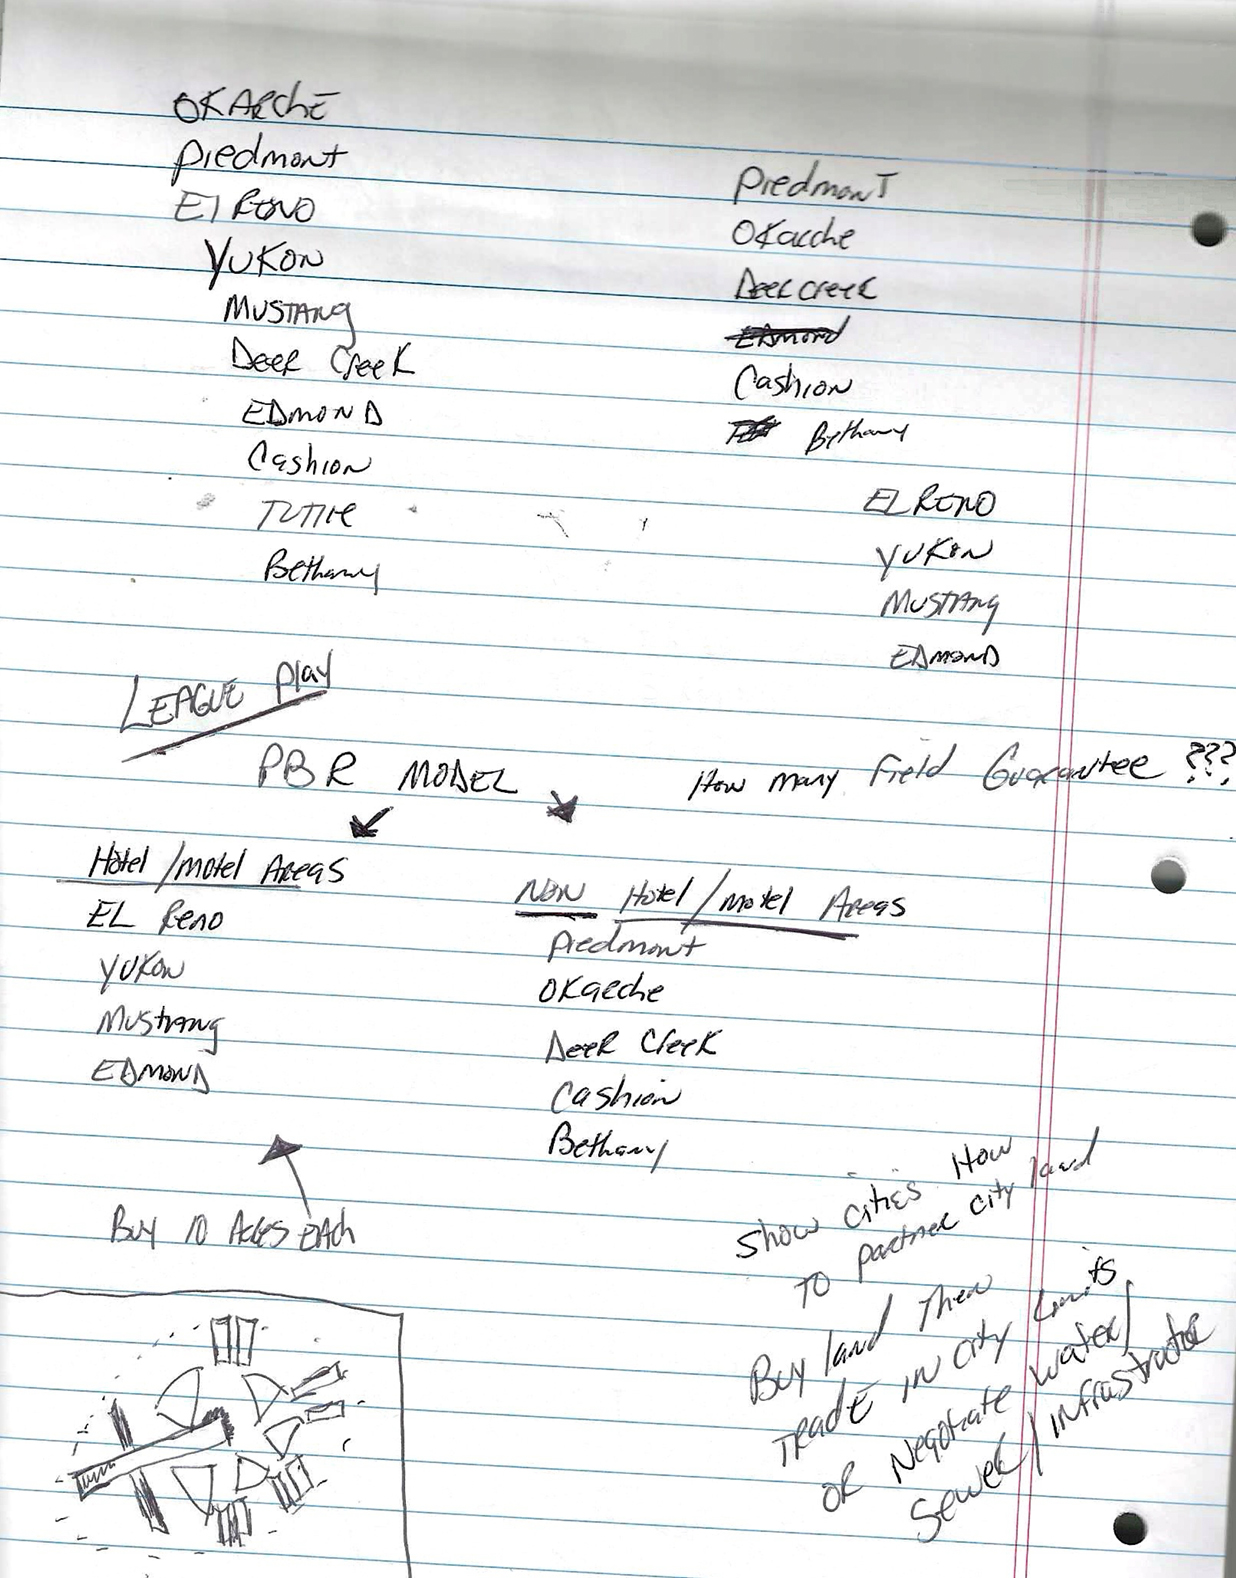 OKARChE
Piedmont
El RENO
YUKON
MUSTANg
DeeR CreeK
EDmOND
Cashion
TUTTlE
Bethany
PiedmonT
OKarche
DeerCreek
Edmond
Cashion
Bethany
EL RENO
YUKON
MUSTANg
EDmOND
LEAGUE Play
PBR MODEL
How many Field Guarantee ???
Hotel/motel AReas
EL Reno
YUKON
MusTrang
EDMOND
NON Hotel/motel AReas
Piedmont
OKaRche
DeeR CreeK
Cashion
Bethany
Buy 10 Acres EACh
Show cities How
TO partner city land
Buy land Then
TRADE IN City limits
OR Negotiate water/
Sewer/infrastructure